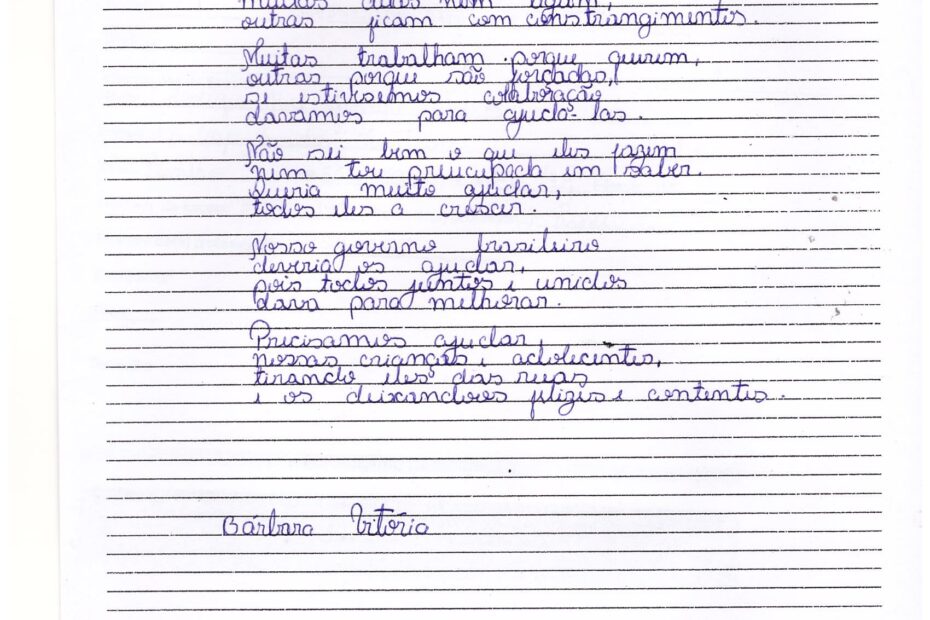 outras ficam com constrangimentos.
Muitas trabalham porque querem,
outras porque são forçadas,
se estivisemos colaboração
davamos para ajuda-las.
Não sei bem o que eles fazem
nem tou preucupada em saber.
Queria muito ajudar,
todos eles a crescer.
Nosso governo brasileiro
deveria os ajudar,
pois todos juntos e unidos
dava para melhorar.
Precisamos ajudar,
nossas crianças e adolecentes,
tirando eles das ruas
e os deixandoos felizes e contentes.
Bárbara Vitória